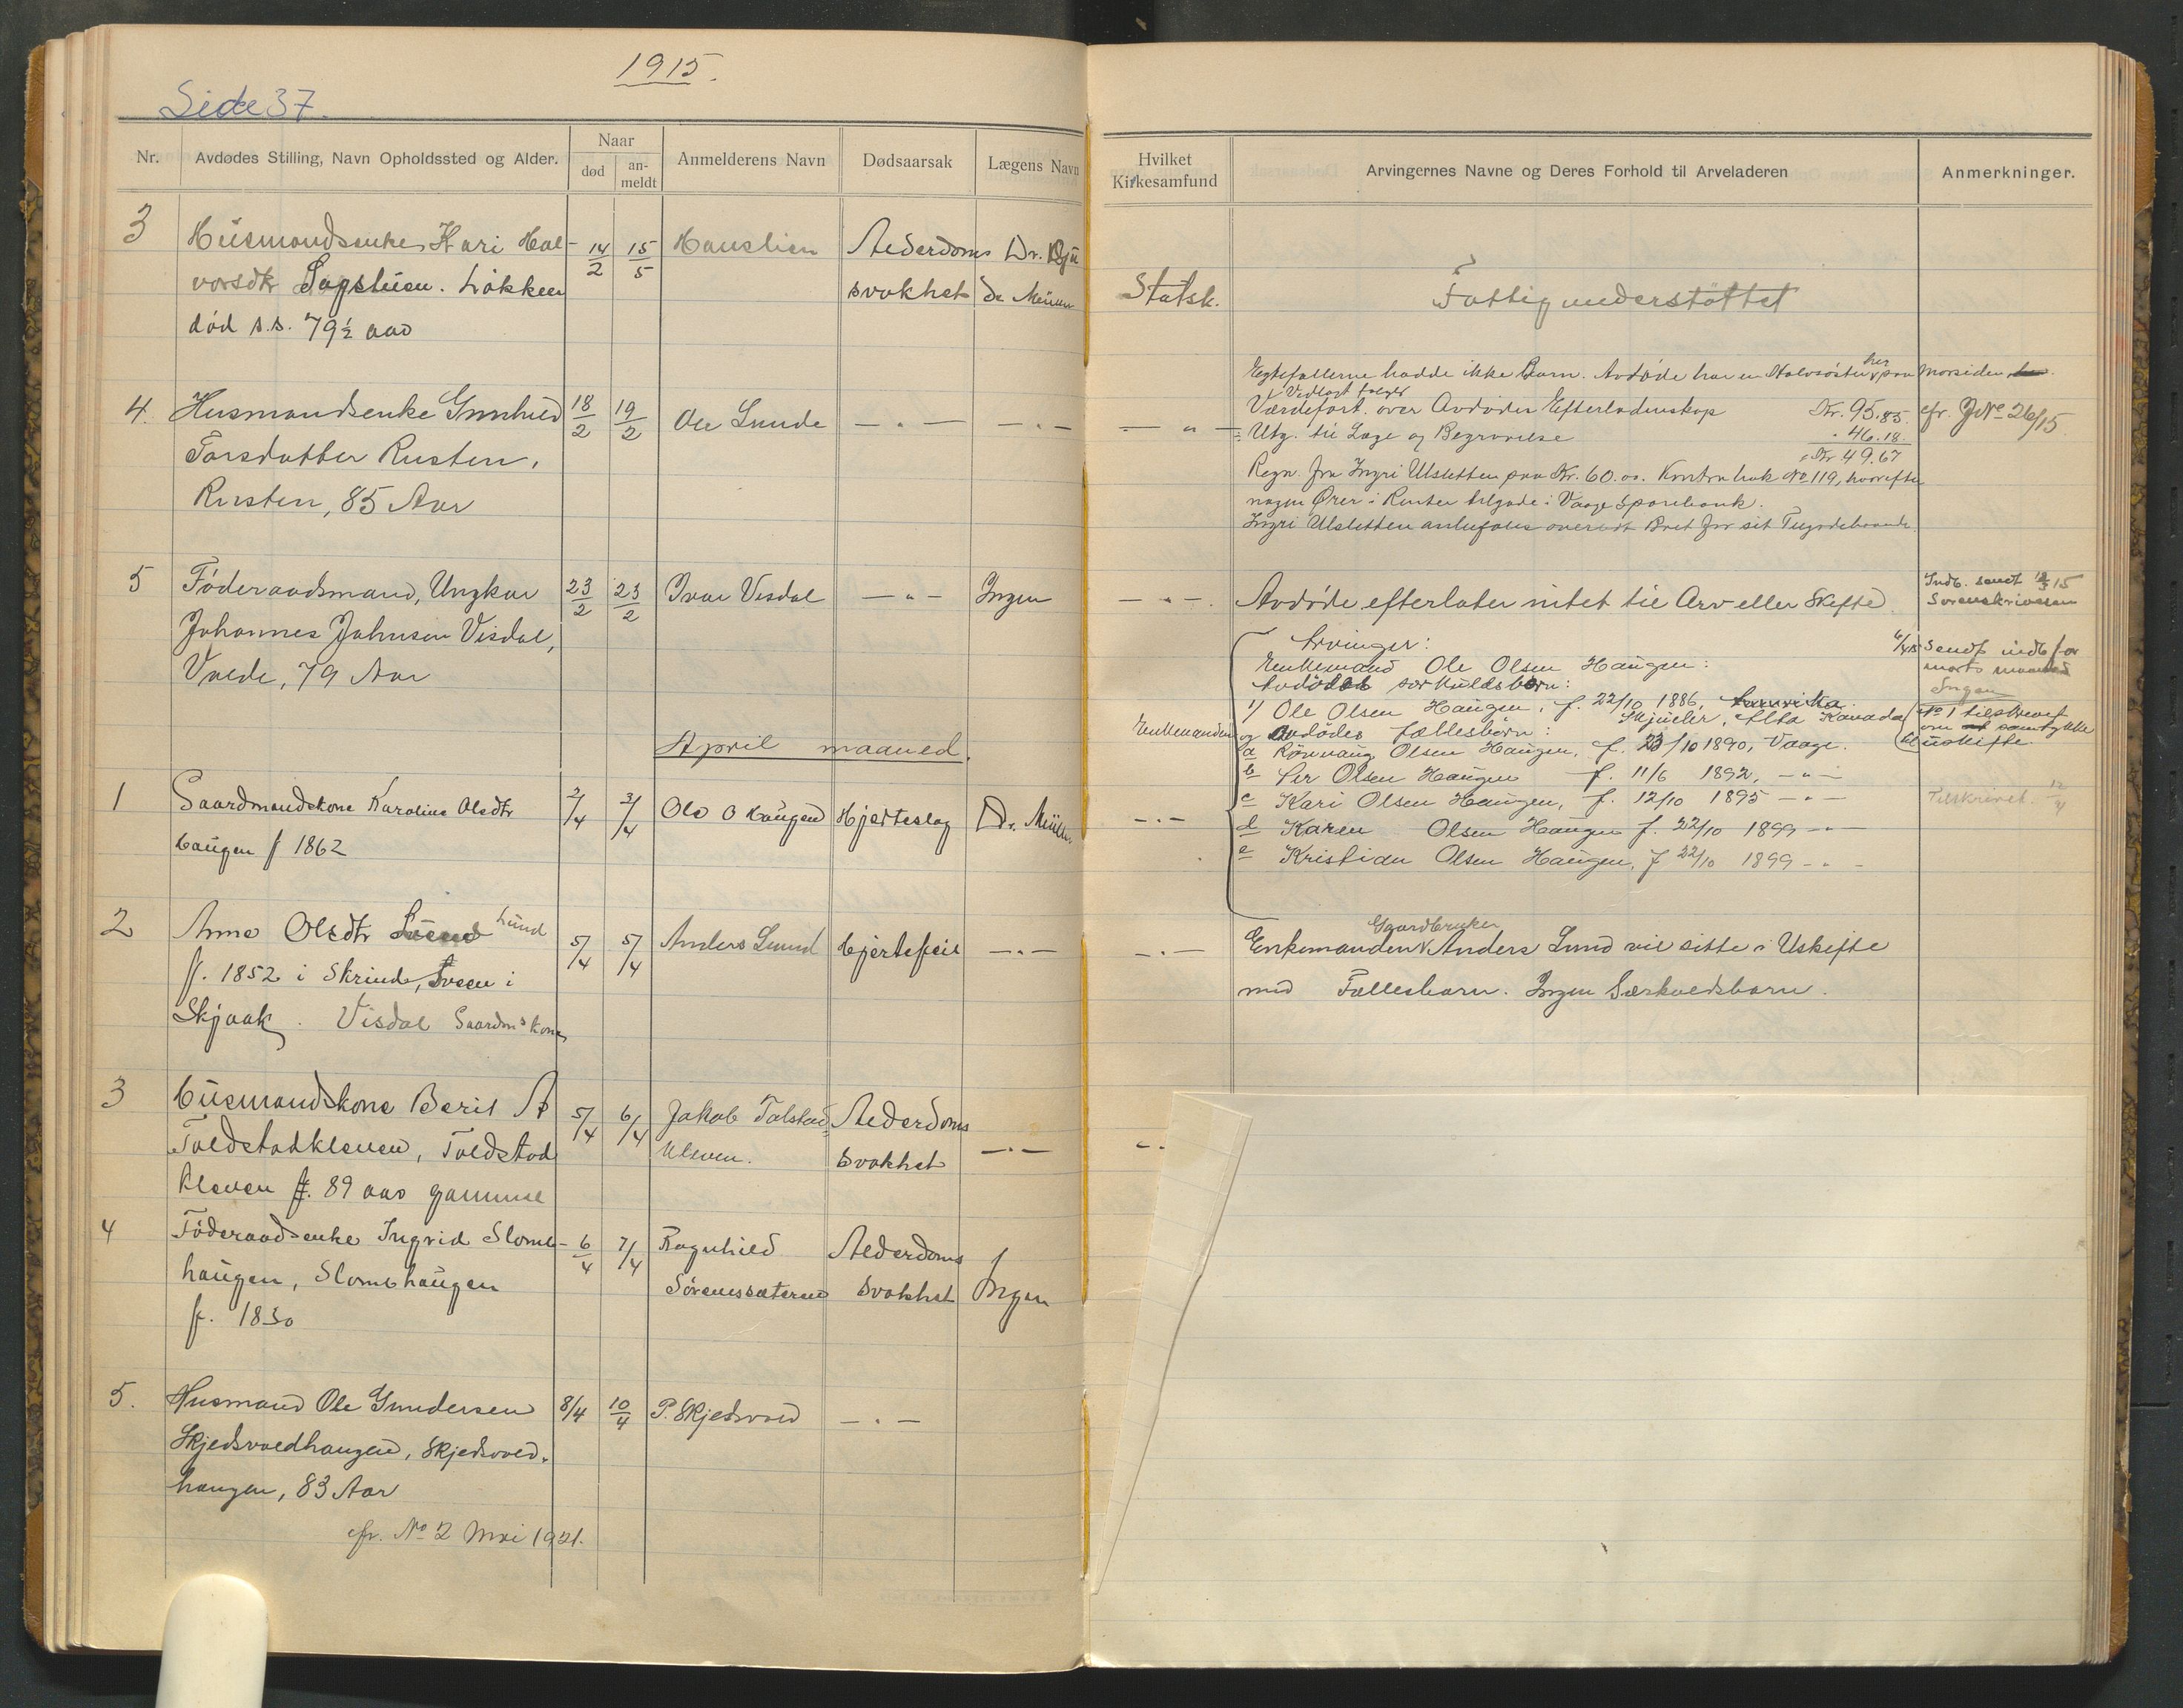 1915.
Side 37.
Nr.
Avdødes Stilling, Navn Opholdssted og Alder.
Naar
død
an-
meldt
Anmelderens Navn
Dødsaarsak
Lægens Navn
Hvilket
Kirkesamfund
Arvingernes Navne og Deres Forhold til Arveladeren
Anmerkninger.
3
Husmandsenke Kari Hal-
vorsdtr
død s.s. 79½ aar
14/2
15/5
Hauslien
Alderdoms
svakhet
Dr.
Statsk.
Fattigunderstøttet
4.
Husmandsenke Gunhild
Torsdatter Rusten,
Rusten, 85 Aar
18/2
19/2
Ole Lunde
— " —
— " —
— " —
Egtefællerne hadde ikke Barn. Avdøde har en Halvsøster her paa Morsiden
Vedlagt følger
Værdefort. over Avdødes Efterladenskap Kr. 95.85.
Utg. til Læge og Begravelse " 46.18.
Kr 49.67
Regn. fra Ingri Ulsletten paa Kr. 60.00. No 119, hvorefter
nogen Ører i Renter i Vaage Sparebank.
Ingri Ulsletten
cfr. JNo 26/15
5
Føderaadsmand, Ungkar
Johannes Johnsen Visdal,
79 Aar
23/2
23/2
Ivar Visdal
— " —
Ingen
— " —
Avdøde efterlater intet til Arv eller Skifte.
Indb. sendt 15
Sorenskriveren
6/4 15 Sendt indb for
marts maaned
Ingen
April maaned.
1
Gaardmandskone Karoline Olsdtr
Haugen f 1862
2/4
3/4
Ole O Haugen
Hjerteslag
Dr. Müller
Enkemanden
— " —
Arvinger:
Enkemand Ole Olsen Haugen:
Avdødes særkuldsbørn:
1) Ole Olsen Haugen, f. 22/10 1886,
Alta Kanada
og Avdødes fællesbørn:
a Rønnaug Olsen Haugen, f. 23/10 1890, Vaage.
b Per Olsen Haugen f. 11/6 1892, — " —
c Kari Olsen Haugen, f. 12/10 1895 — " —
d Karen Olsen Haugen f. 22/10 1899 — " —
e Kristian Olsen Haugen, f 22/10 1899 — " —
No 1 tilskrevet
om samtykke
til uskifte.
Tilskrivet 12/4
2
Anne Olsdtr Lund
f. 1852 i Skrinde, i
Skjaak. Visdal Gaardmskone
5/4
5/4
Anders Lund
Hjertefeil
— " —
— " —
Gaardbruker
Enkemanden Anders Lund vil sitte i Uskifte
med Fællesbarn. Ingen Særkuldsbarn.
3
Husmandskone Berit
Toldstadkleven, Toldstad
kleven f. 89 aar gammel
5/4
6/4
Jakob Tolstad
Ulsven.
Alderdoms
svakhet
— " —
4
Føderaadsenke Ingrid Slomb-
haugen, Slombhaugen
f. 1830
6/4
7/4
Ragnhild
Sørenssæteren
Alderdoms
svakhet
Ingen
5.
Husmand Ole Gundersen
Skjedsvoldhaugen, Skjedsvold-
haugen, 83 Aar
8/4
10/4
P. Skjedsvold
— " —
cfr. No 2 Mai 1921.